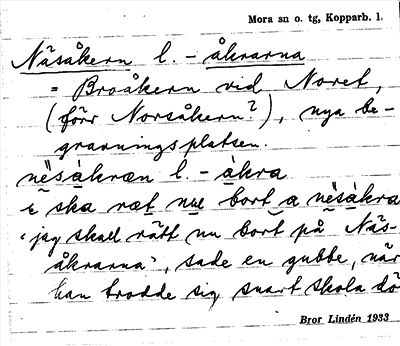 Mora sn o. tg, Kopparb. l.
Näsåkern l. - åkrarna
= Broåkern vid Noret,
(förr Norsåkern?), nya be-
gravningsplatsen.
nęsåkræn l. - åkra
ska ræt nu bort a nęsåkra
'jag skall rätt nu bort på Näs-
åkrarna', sade en gubbe, när
han trodde sig snart skola dö
Bror Lindén 1933